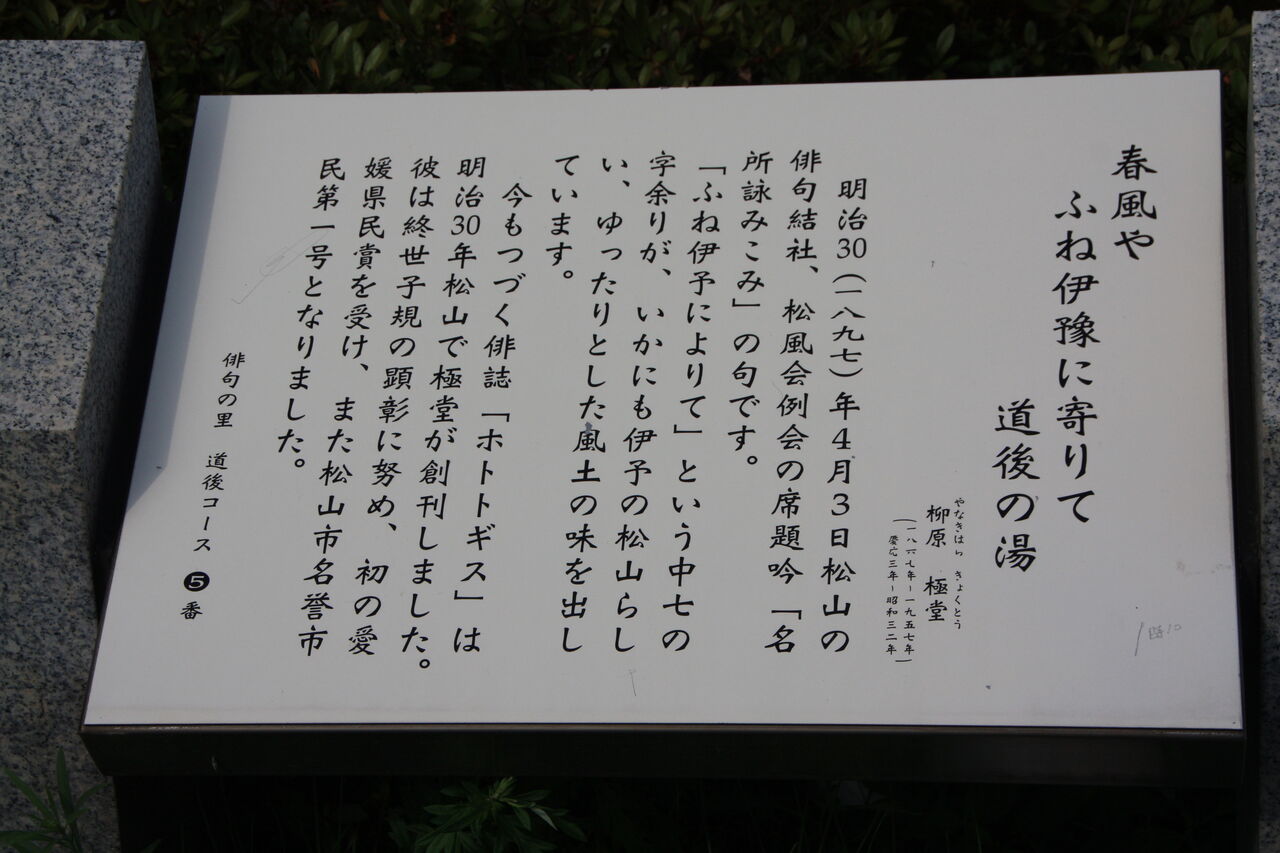 春風や
ふね伊豫に寄りて
道後の湯
やなぎはら きょくどう
柳原 極堂
(一八六七年~一九五七年)
慶応三年~昭和三二年
明治30(一八九七)年4月3日松山の
俳句結社、松風会例会の席題吟「名
所詠みこみ」の句です。
「ふね伊予によりて」という中七の
字余りが、いかにも伊予の松山らし
い、ゆったりとした風土の味を出し
ています。
今もつづく俳誌「ホトトギス」は
明治30年松山で極堂が創刊しました。
彼は終世子規の顕彰に努め、初の愛
媛県民賞を受け、また松山市名誉市
民第一号となりました。
俳句の里 道後コース ❺番